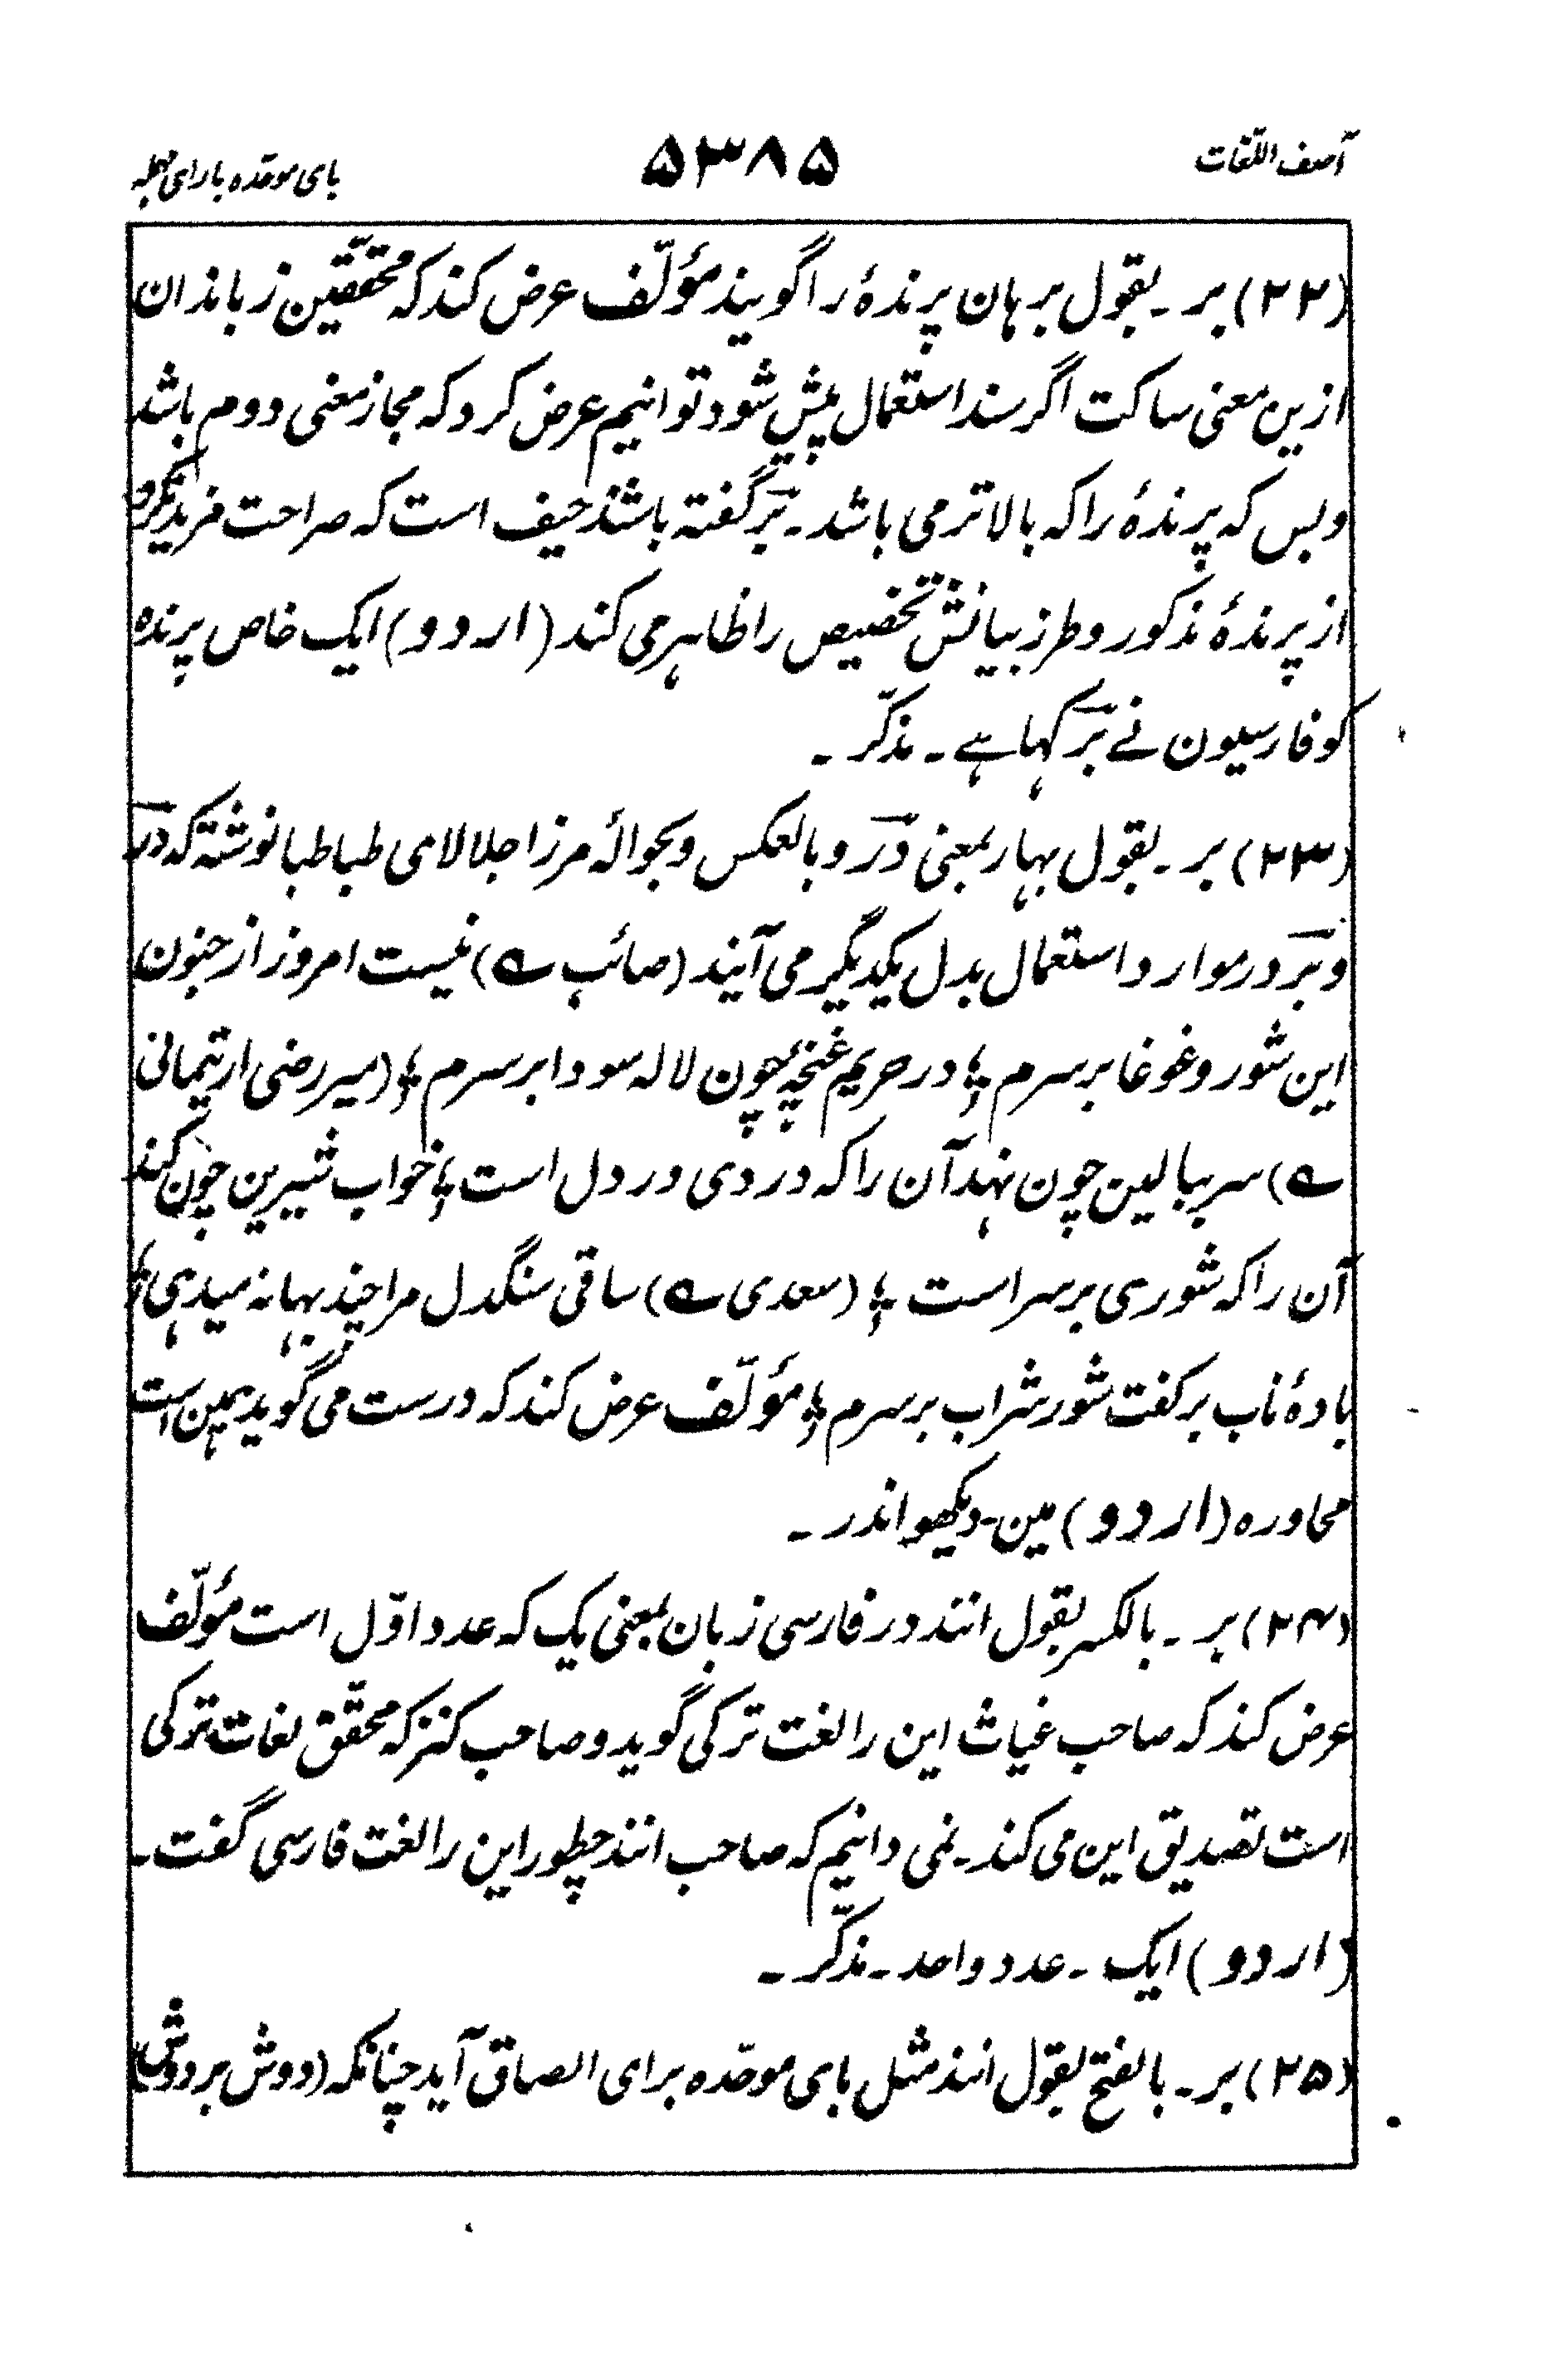 آصف اللّغات
۵۳۸۵
بای موحّده با رای مهمله
(۲۲) بر۔ بقول برہان پرندۂ را گویند مؤلّف عرض کند کہ محقّقین زباندان
ازین معنی ساکت اگر سند استعمال پیش شود توانیم عرض کرد کہ مجاز معنی دوم باشد
وبس کہ پرندۂ را کہ بالاتر می باشد۔ بَر گفتہ باشند حیف است کہ صراحت مزید نکرد
از پرندۂ مذکور و طرز بیانش تخصیص را ظاہر می کند (اردو) ایک خاص پرندہ
کو فارسیون نے بَر کہا ہے۔ مذکّر۔
(۲۳) بر۔ بقول بہار بمعنی دَر و بالعکس و بحوالۂ مرزا جلالای طباطبا نوشتہ کہ در
و بر در موارد استعمال بدل یکدیگر می آیند (صائب ؎) نیست امروز از جنون
این شور و غوغا بر سرم ؛ در حریم غنچہ چون لالہ سودا بر سرم ؛ (میر رضی ارتیمانی
؎) سر ببالین چون نہد آن را کہ دردی در دل است ؛ خواب شیرین چون کند
آن را کہ شوری بر سر است ؛ (سعدی ؎) ساقی سنگدل مرا چند بہانہ میدہی ؛
بادۂ ناب بر کفت شور شراب بر سرم ؛ مؤلّف عرض کند کہ درست می گوید ہمین است
محاورہ (اردو) مین۔ دیکھو اندر۔
(۲۴) بر۔ بالکسر بقول انند در فارسی زبان بمعنی یک کہ عدد اوّل است مؤلّف
عرض کند کہ صاحب غیاث این را لغت ترکی گوید و صاحب کنز کہ محقّق لغات ترکی
است تصدیق این می کند۔ نمی دانیم کہ صاحب انند چطور این را لغت فارسی گفت۔
(اردو) ایک۔ عدد واحد۔ مذکّر۔
(۲۵) بر۔ بالفتح بقول انند مثل بای موحّدہ برای الصاق آید چنانکہ (دوش بردوش)